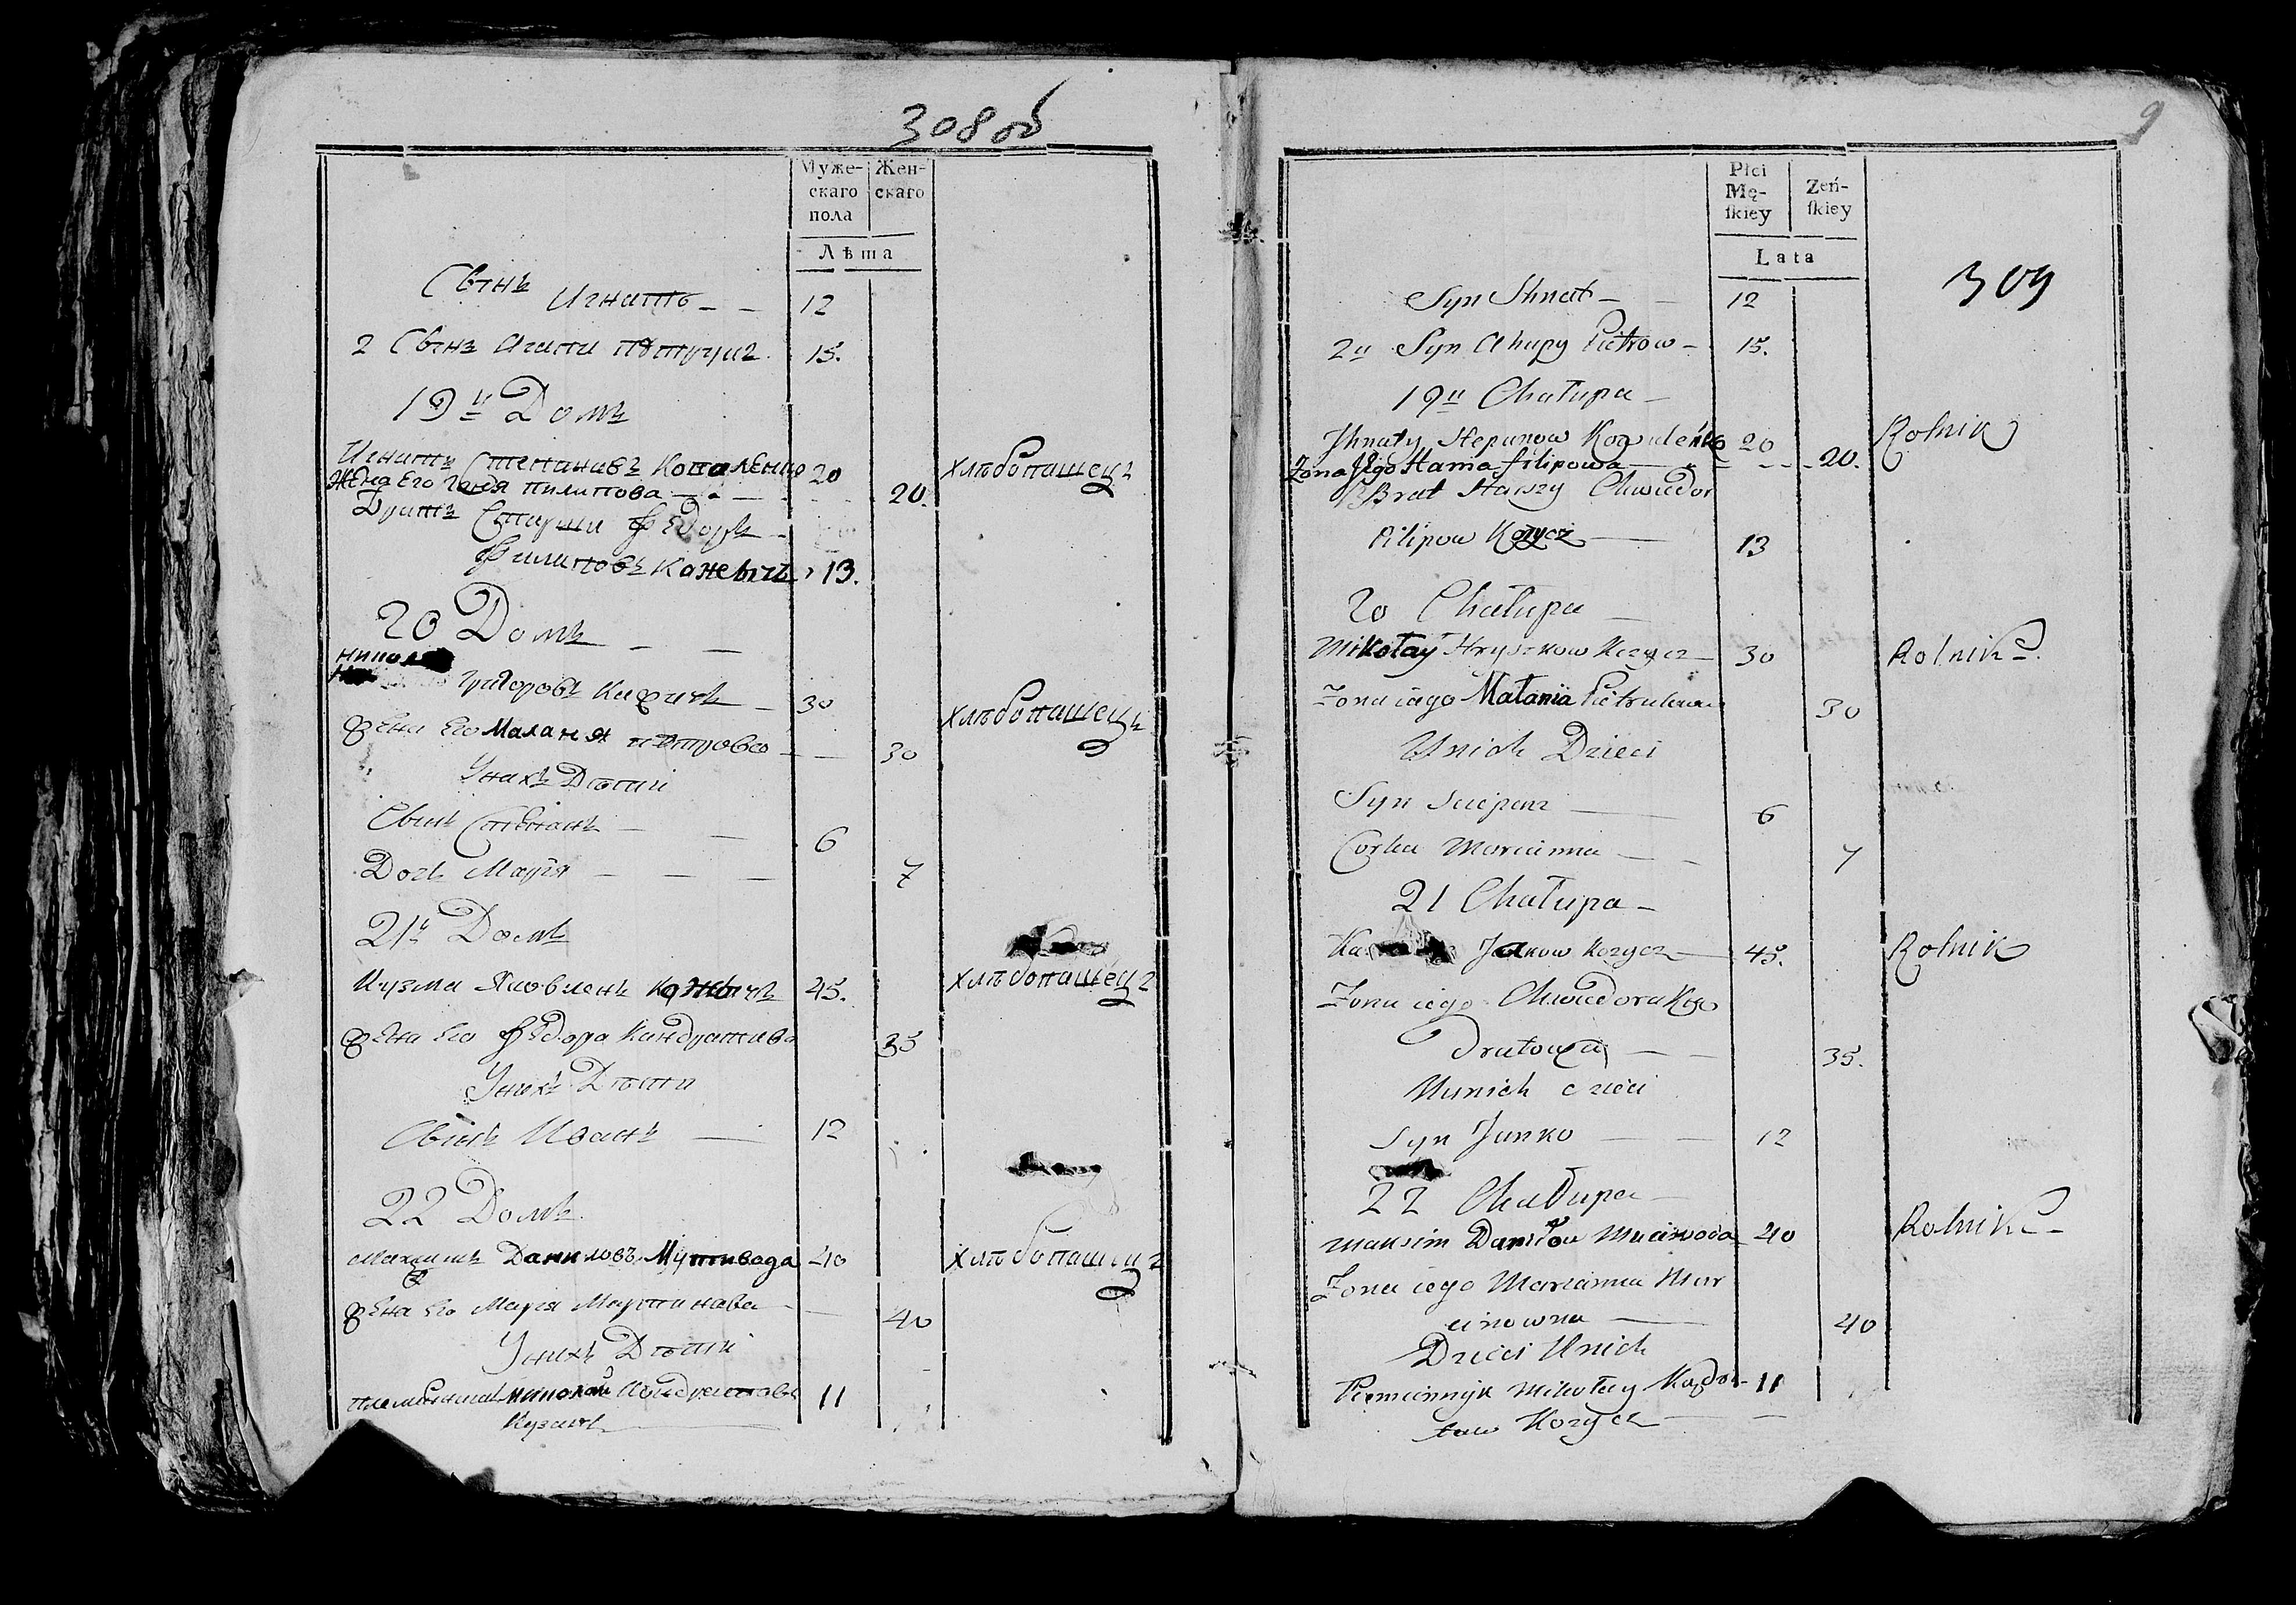 308 об
Мужескаго пола
Женскаго
Лѣта
Сынъ Игнатъ 12
2 Сынъ Агапи 15.
19й Домъ
Игнатъ Степановъ Коваленко 20 хлѣбопашецъ
Жена Его Ганя Пилипова 20.
Братъ Старши Федоръ
Филиповъ Кожевичъ 13.
20 Домъ
Григоровъ 30 хлѣбопашецъ
жена Его Маланя Петрова 30
Унихъ Дѣти
Сынъ Степанъ 6
Дочь Марія 7
21й Домъ
Кузма Яковлевъ 45. хлѣбопашецъ
жена Его Федора Кандратива 35
Унихъ Дѣти
Сынъ Иванъ 12
22 Домъ
Максимъ Даниловъ Мутивода 40 хлѣбопашецъ
жена Его Марія Мартинава 40
Унихъ Дѣти
11
9
Płci Mę-skiey
Zeń-skiey
Lata
309
Syn Ihnat 12
2й Syn Ahapy Pietrow 15.
19й Chałupa
Ihnaty Stepanow 20 Rolnik
Zona Jego Hania filipowa 20.
Brat Starszy Chwiedor
Pilipow 13
20 Chałupa
Mikołay Hryszkow Kozycz 30 Rolnik
Zona iego Małania 30
Unich Dzieci
Syn 6
Corka Marianna 7
21 Chałupa
Jakow Kozycz 45. Rolnik
Zona iego Chwiedora Kon
dratowa 35.
Unich dzieci
Syn Janko 12
22 Chałupa
Maksim Daniłow Muciwoda 40 Rolnik
Zona iego Marianna Mar
cinowna 40
Dzieci Unich
Mikołay Kąd 11
tow Kozycz